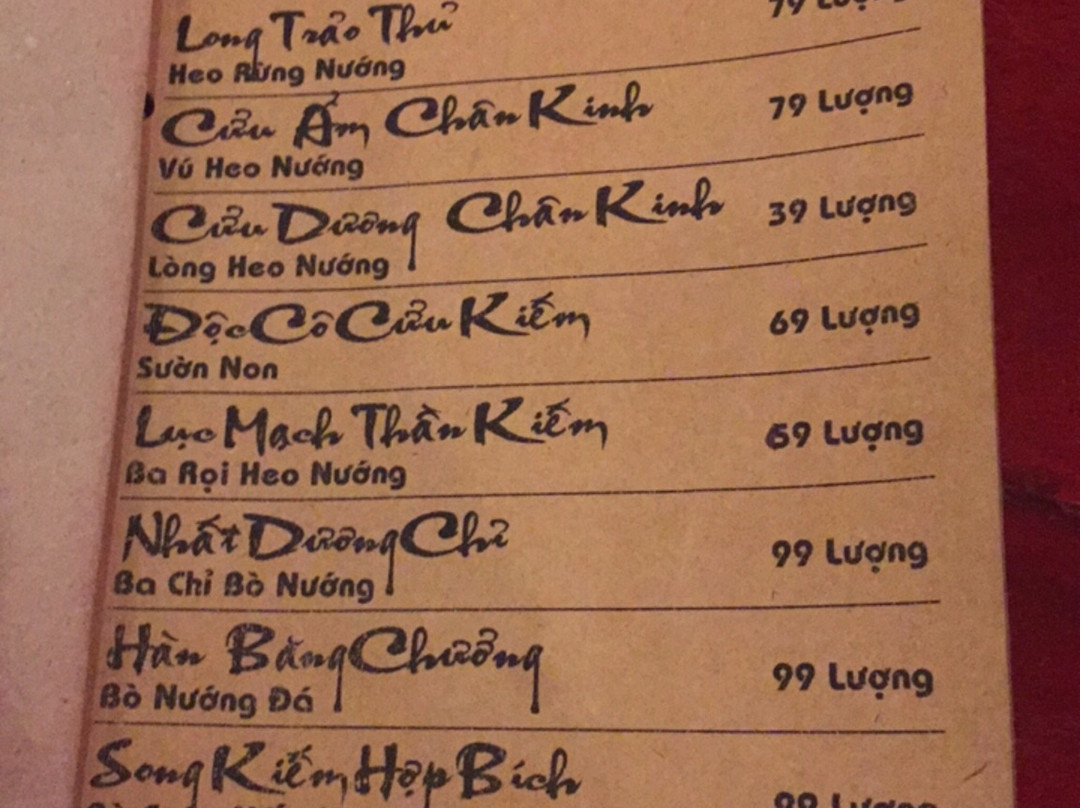 Long Trảo Thủ 79 Lượng
Heo Rừng Nướng
Cửu Ấm Chân Kinh 79 Lượng
Vú Heo Nướng
Cửu Dương Chân Kinh 39 Lượng
Lòng Heo Nướng
Độc Cô Cửu Kiếm 69 Lượng
Sườn Non
Lục Mạch Thần Kiếm 69 Lượng
Ba Rọi Heo Nướng
Nhất Dương Chỉ 99 Lượng
Ba Chỉ Bò Nướng
Hàn Băng Chưởng 99 Lượng
Bò Nướng Đá
Song Kiếm Hợp Bích 99 Lượng